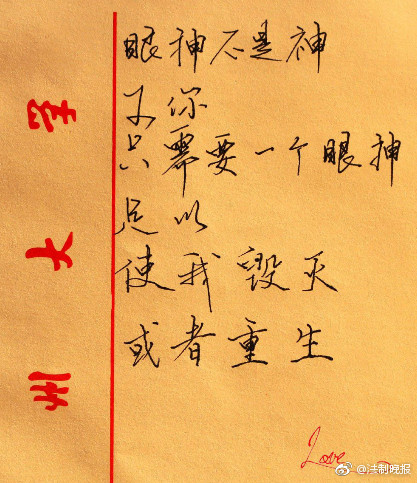 眼神不是神
你
只需要一个眼神
足以
使我毁灭
或者重生
大
州
Love
@法制晚报